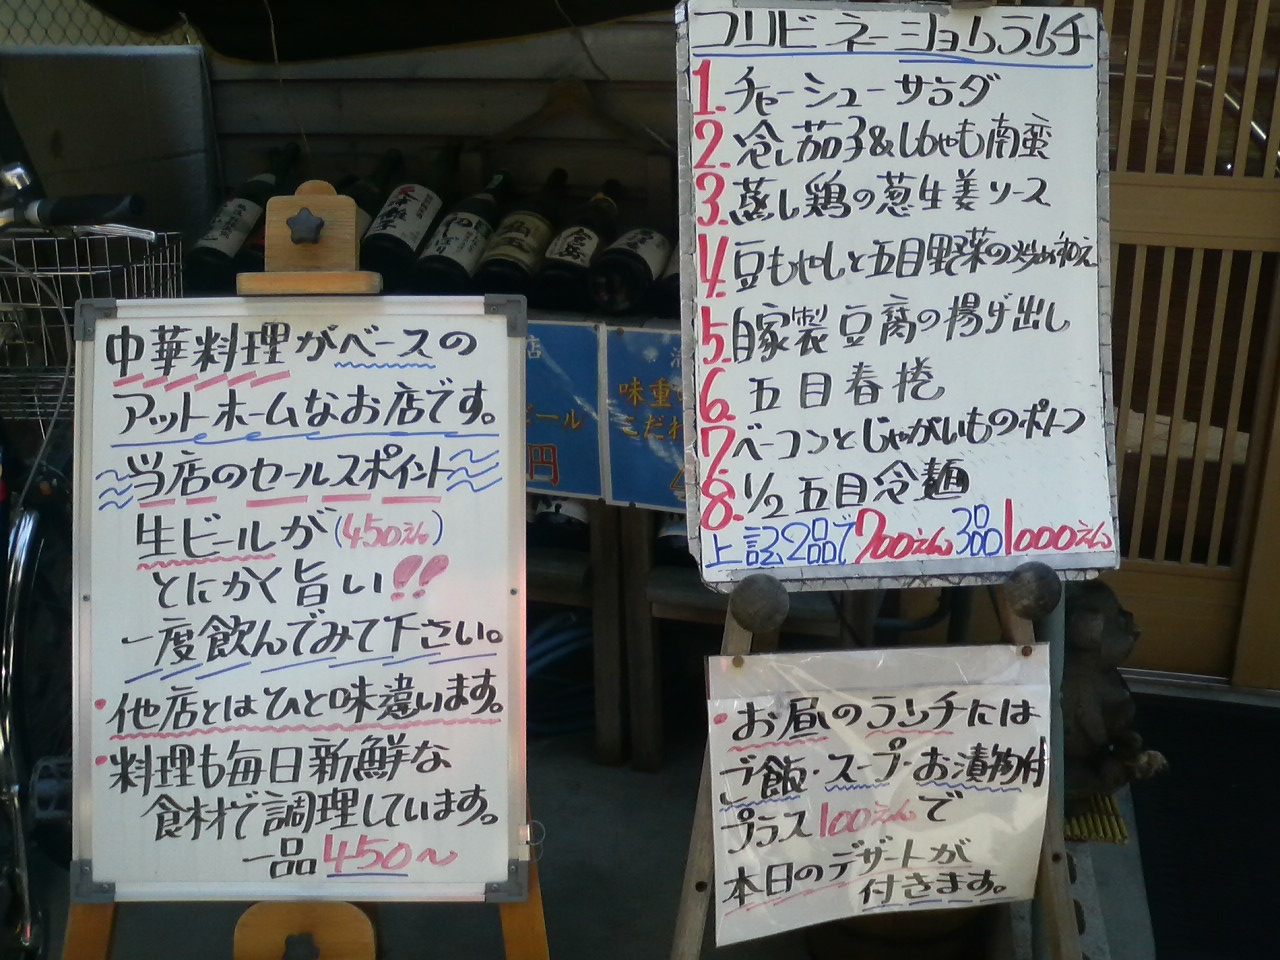 中華料理がベースの
アットホームなお店です。
当店のセールスポイント
生ビールが(450えん)
とにかく旨い!!
一度飲んでみて下さい。
・他店とはひと味違います。
・料理も毎日新鮮な
食材で調理しています。
一品450〜
コンビネーションランチ
1. チャーシューサラダ
2. 冷し茄子&ししゃも南蛮
3. 蒸し鶏の葱生姜ソース
4. 豆もやしと五目野菜の炒め和え
5. 自家製豆腐の揚げ出し
6. 五目春捲
7. ベーコンとじゃがいものポトフ
8. 1/2五目冷麺
上記2品で700えん3品1000えん
・お昼のランチには
ご飯・スープ・お漬物付
プラス100えんで
本日のデザートが
付きます。
店
ビール
円
味重
こだわ